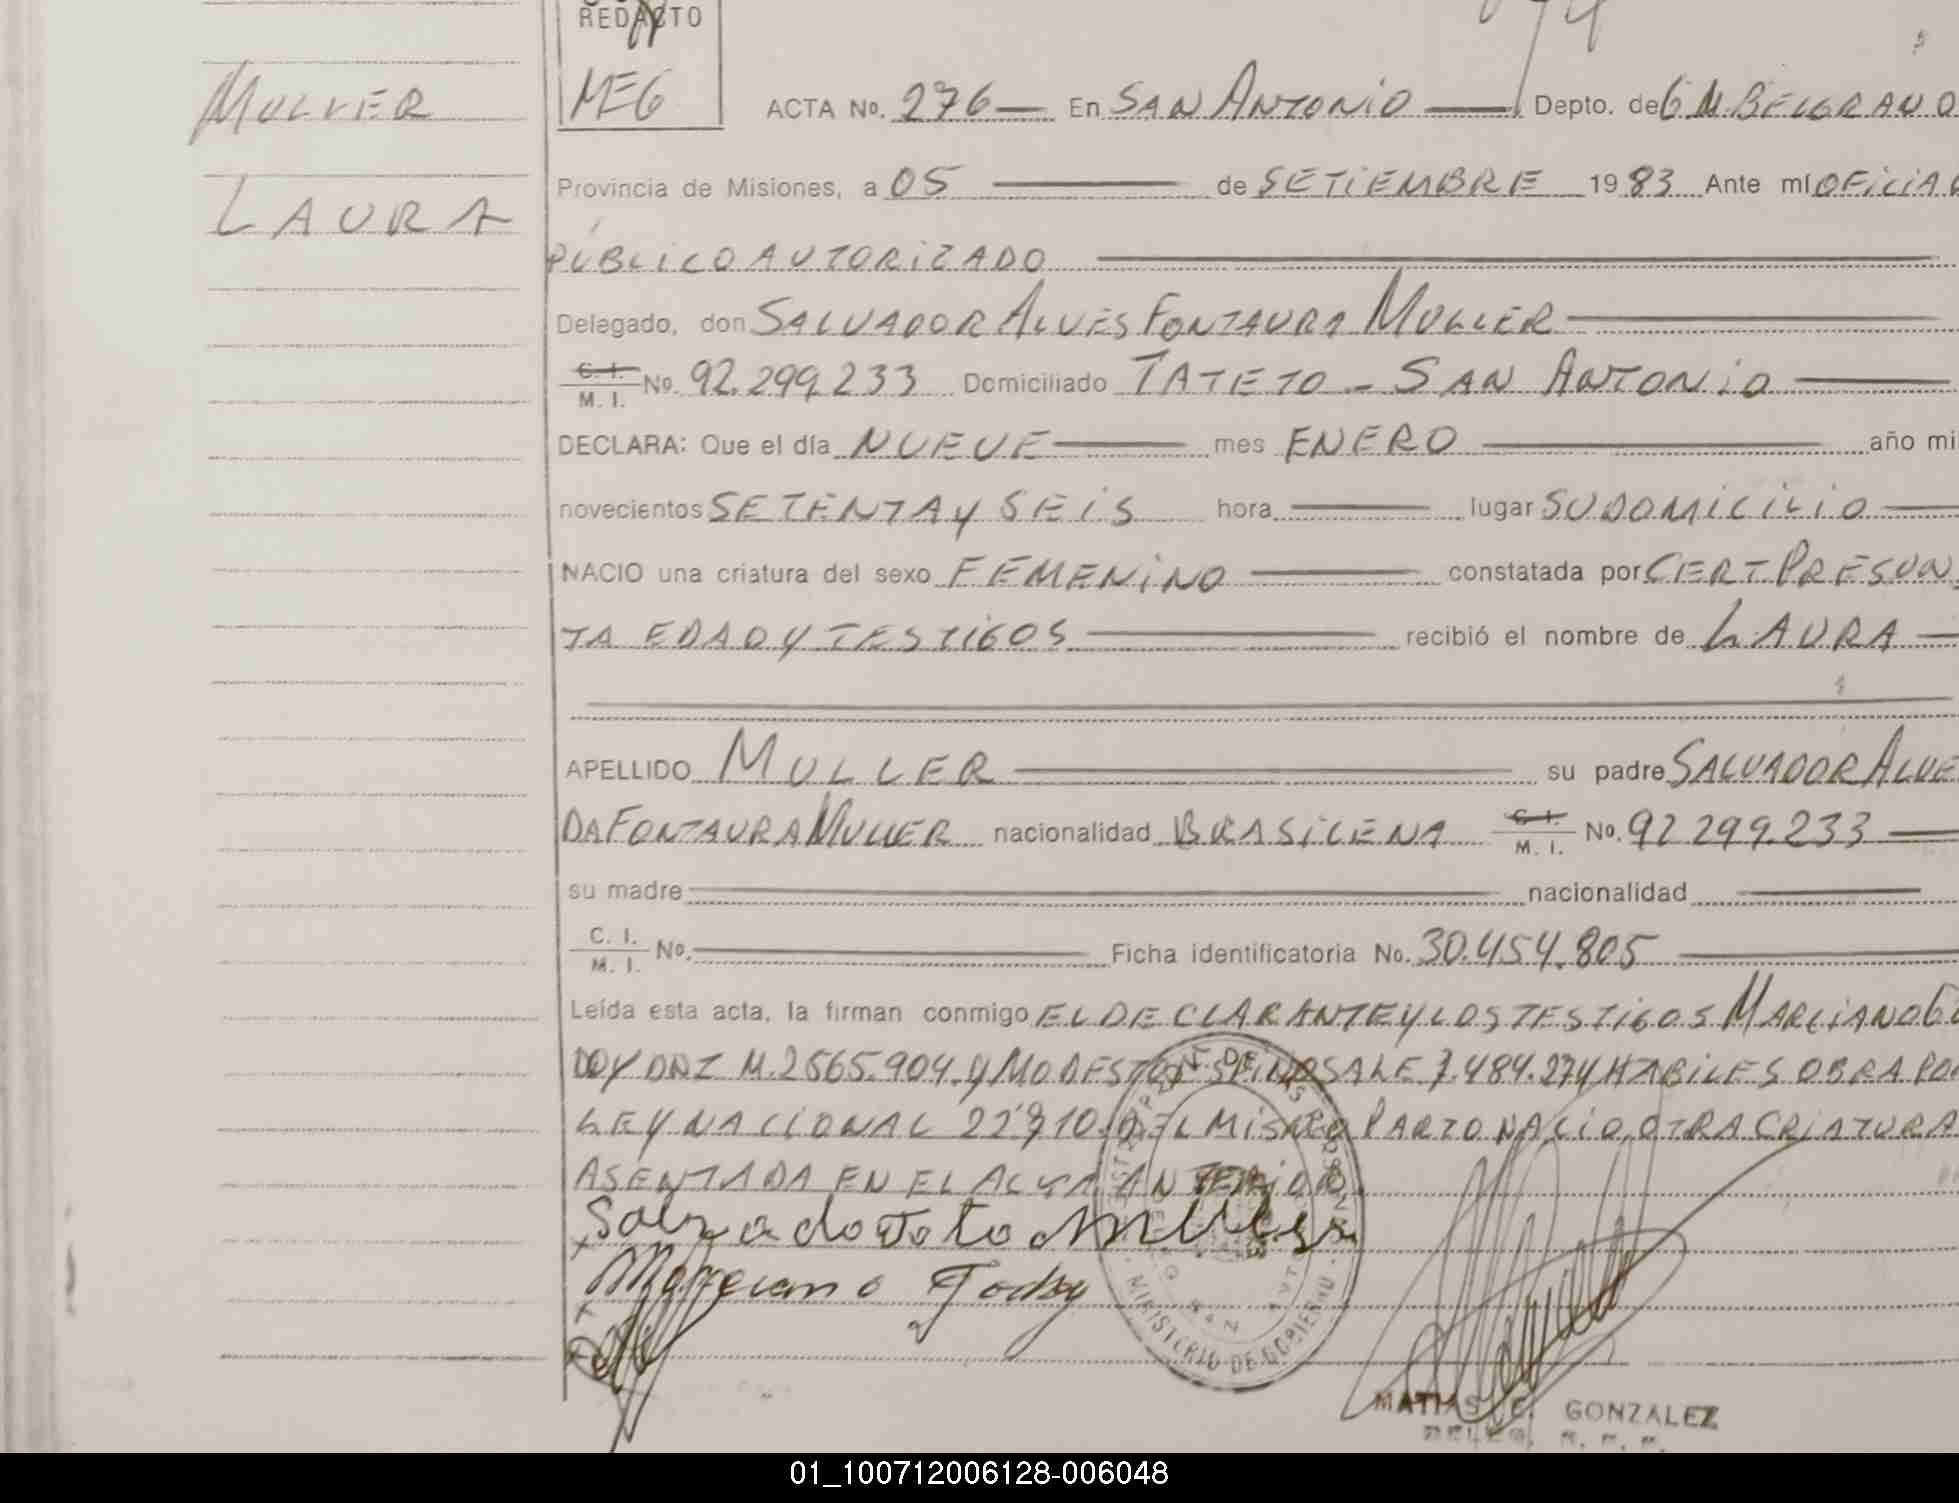 REDACTO
MEG
MULLER
LAURA
ACTA No. 276 En SAN ANTONIO Depto. de G M. BELGRANO
Provincia de Misiones, a 05 de SETIEMBRE 1983 Ante mí OFICIAL
PÚBLICO AUTORIZADO
Delegado, don SALVADOR ALVES FONTAURA MULLER
C. I. M. I. No. 92.299.233 Domiciliado TATETO - SAN ANTONIO
DECLARA: Que el día NUEVE mes ENERO año mi
novecientos SETENTA Y SEIS hora lugar SU DOMICILIO
NACIO una criatura del sexo FEMENINO constatada por CERT PRESUN
TA EDAD Y TESTIGOS recibió el nombre de LAURA
APELLIDO MULLER su padre SALVADOR ALVE
DA FONTAURA MULLER nacionalidad BRASILENA C. I. M. I. No. 92 299.233
su madre nacionalidad
C. I. M. I. No. Ficha identificatoria No. 30.454.805
Leída esta acta, la firman conmigo EL DECLARANTE Y LOS TESTIGOS MARCIANO GO
DOY DNI M. 2565.904. Y MODESTO ESPINOSA LE 7.484.274 HABILES OBRA POR
LEY NACIONAL DEL MISMO PARTO NACIO OTRA CRIATURA
ASENTADA EN EL ACTA ANTERIOR.
Salvado Muller
Marciano Godoy
MINISTERIO DE GOBIERNO
MATIAS E. GONZALEZ
01_100712006128-006048